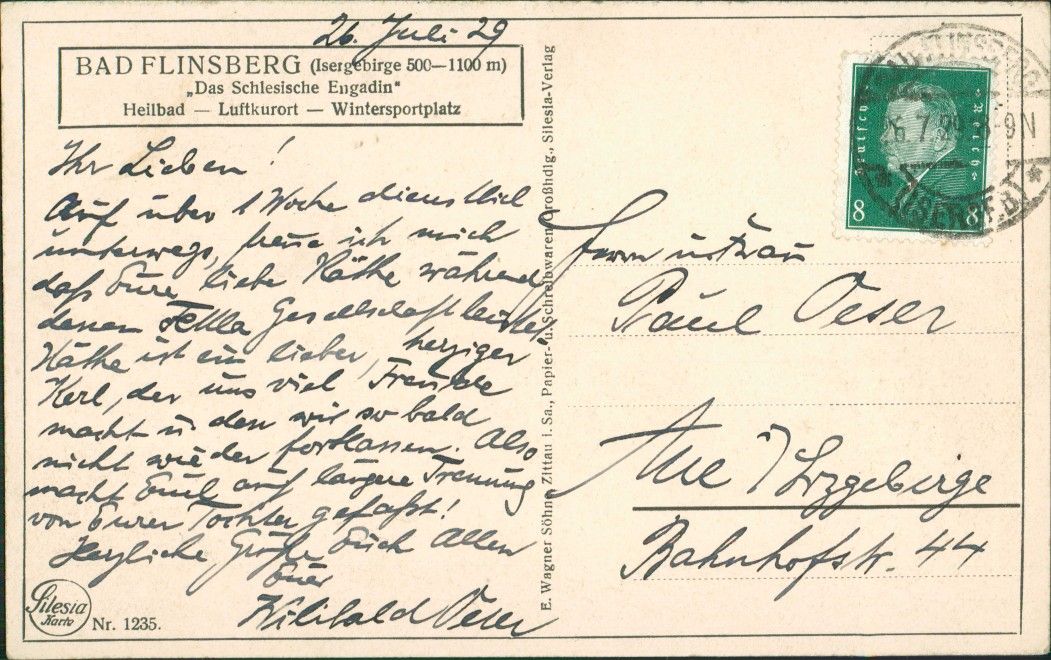 26. Juli 29
BAD FLINSBERG (Isergebirge 500—1100 m)
„Das Schlesische Engadin"
Heilbad — Luftkurort — Wintersportplatz
Ihr Lieben!
Auf über 1 Woche dienstlich
unterwegs, freue ich mich
daß Eure liebe Käthe während
denen Gesellschaft leistet.
Käthe ist ein lieber, herziger
Kerl, der uns viel Freude
macht u den wir so bald
nicht wieder fortlassen. Also
macht Euch auf längere Trennung
von Eurer Tochter gefaßt!
Herzliche Grüße Euch Allen
Euer
Wilibald Oeser
Silesia
Karte
Nr. 1235.
E. Wagner Söhne, Zittau i. Sa., Papier- u. Schreibwaren-Großhdlg., Silesia-Verlag
Deutsches Reich
8 8
BAD FLINSBERG
26.7.29 8-9N
(ISERGEB.)
Herrn u Frau
Paul Oeser
Aue i/Erzgebirge
Bahnhofstr. 44